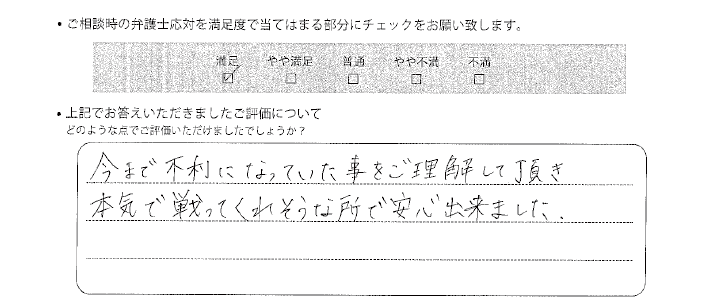 ・ご相談時の弁護士応対を満足度で当てはまる部分にチェックをお願い致します。
満足 やや満足 普通 やや不満 不満
☑ □ □ □ □
・上記でお答えいただきましたご評価について
どのような点でご評価いただけましたでしょうか？
今まで不利になっていた事をご理解して頂き
本気で戦ってくれそうな所で安心出来ました.